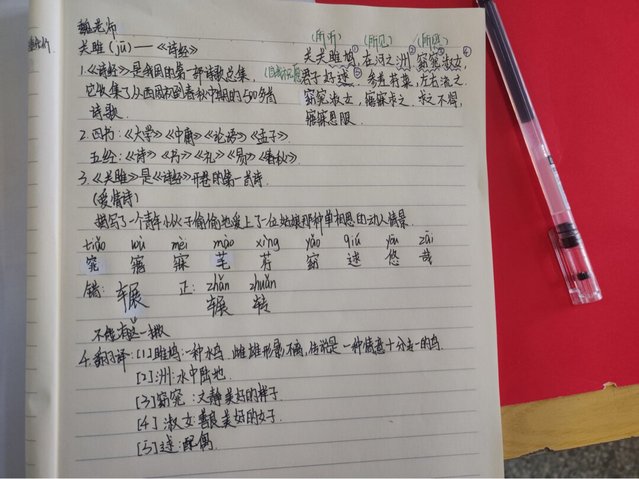 魏老师
关雎(jū)——《诗经》
1.《诗经》是我国的第一部诗歌总集
它收集了从西周到春秋中期的500多首
诗歌.
2.四书:《大学》《中庸》《论语》《孟子》
五经:《诗》《书》《礼》《易》《春秋》
3.《关雎》是《诗经》开卷的第一首诗.
(爱情诗)
描写了一个青年小伙子偷偷地爱上了一位姑娘那种单相思的动人情景.
tiǎo wù mèi mào xìng yǎo qiú yōu zāi
窕 寤 寐 芼 荇 窈 逑 悠 哉
错: 辗 正: zhǎn zhuǎn
辗 转
不能有这一撇
4.翻译:[1]雎鸠:一种水鸟 雌雄形影不离,传说是一种情意十分专一的鸟
[2]洲:水中陆地
[3]窈窕:文静美好的样子.
[4]淑女:善良美好的女子.
[5]逑:配偶
(所听) (所见) (所思)
关关雎鸠①,在河之洲②.窈窕③淑女④
君子好逑⑤. 参差荇菜,左右流之.
窈窕淑女,寤寐求之.求之不得,
寤寐思服.